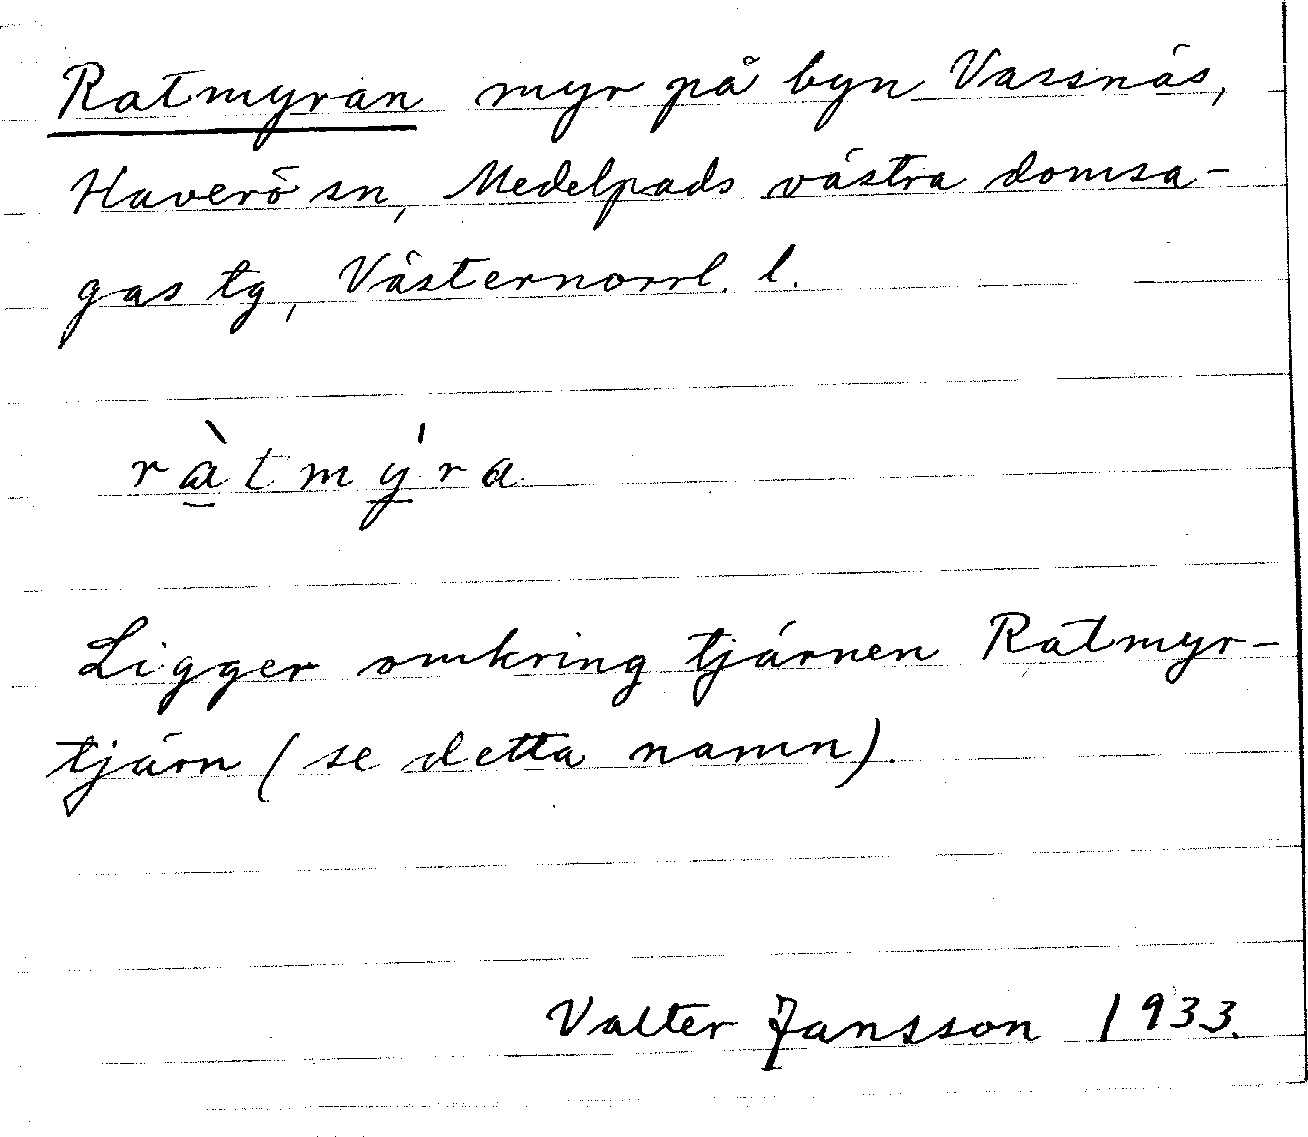 Ratmyran myr på byn Vassnäs,
Haverö sn, Medelpads västra domsa-
gas tg, Västernorrl. l.
ràtmýra
Ligger omkring tjärnen Ratmyr-
tjärn (se detta namn).
Valter Jansson 1933.